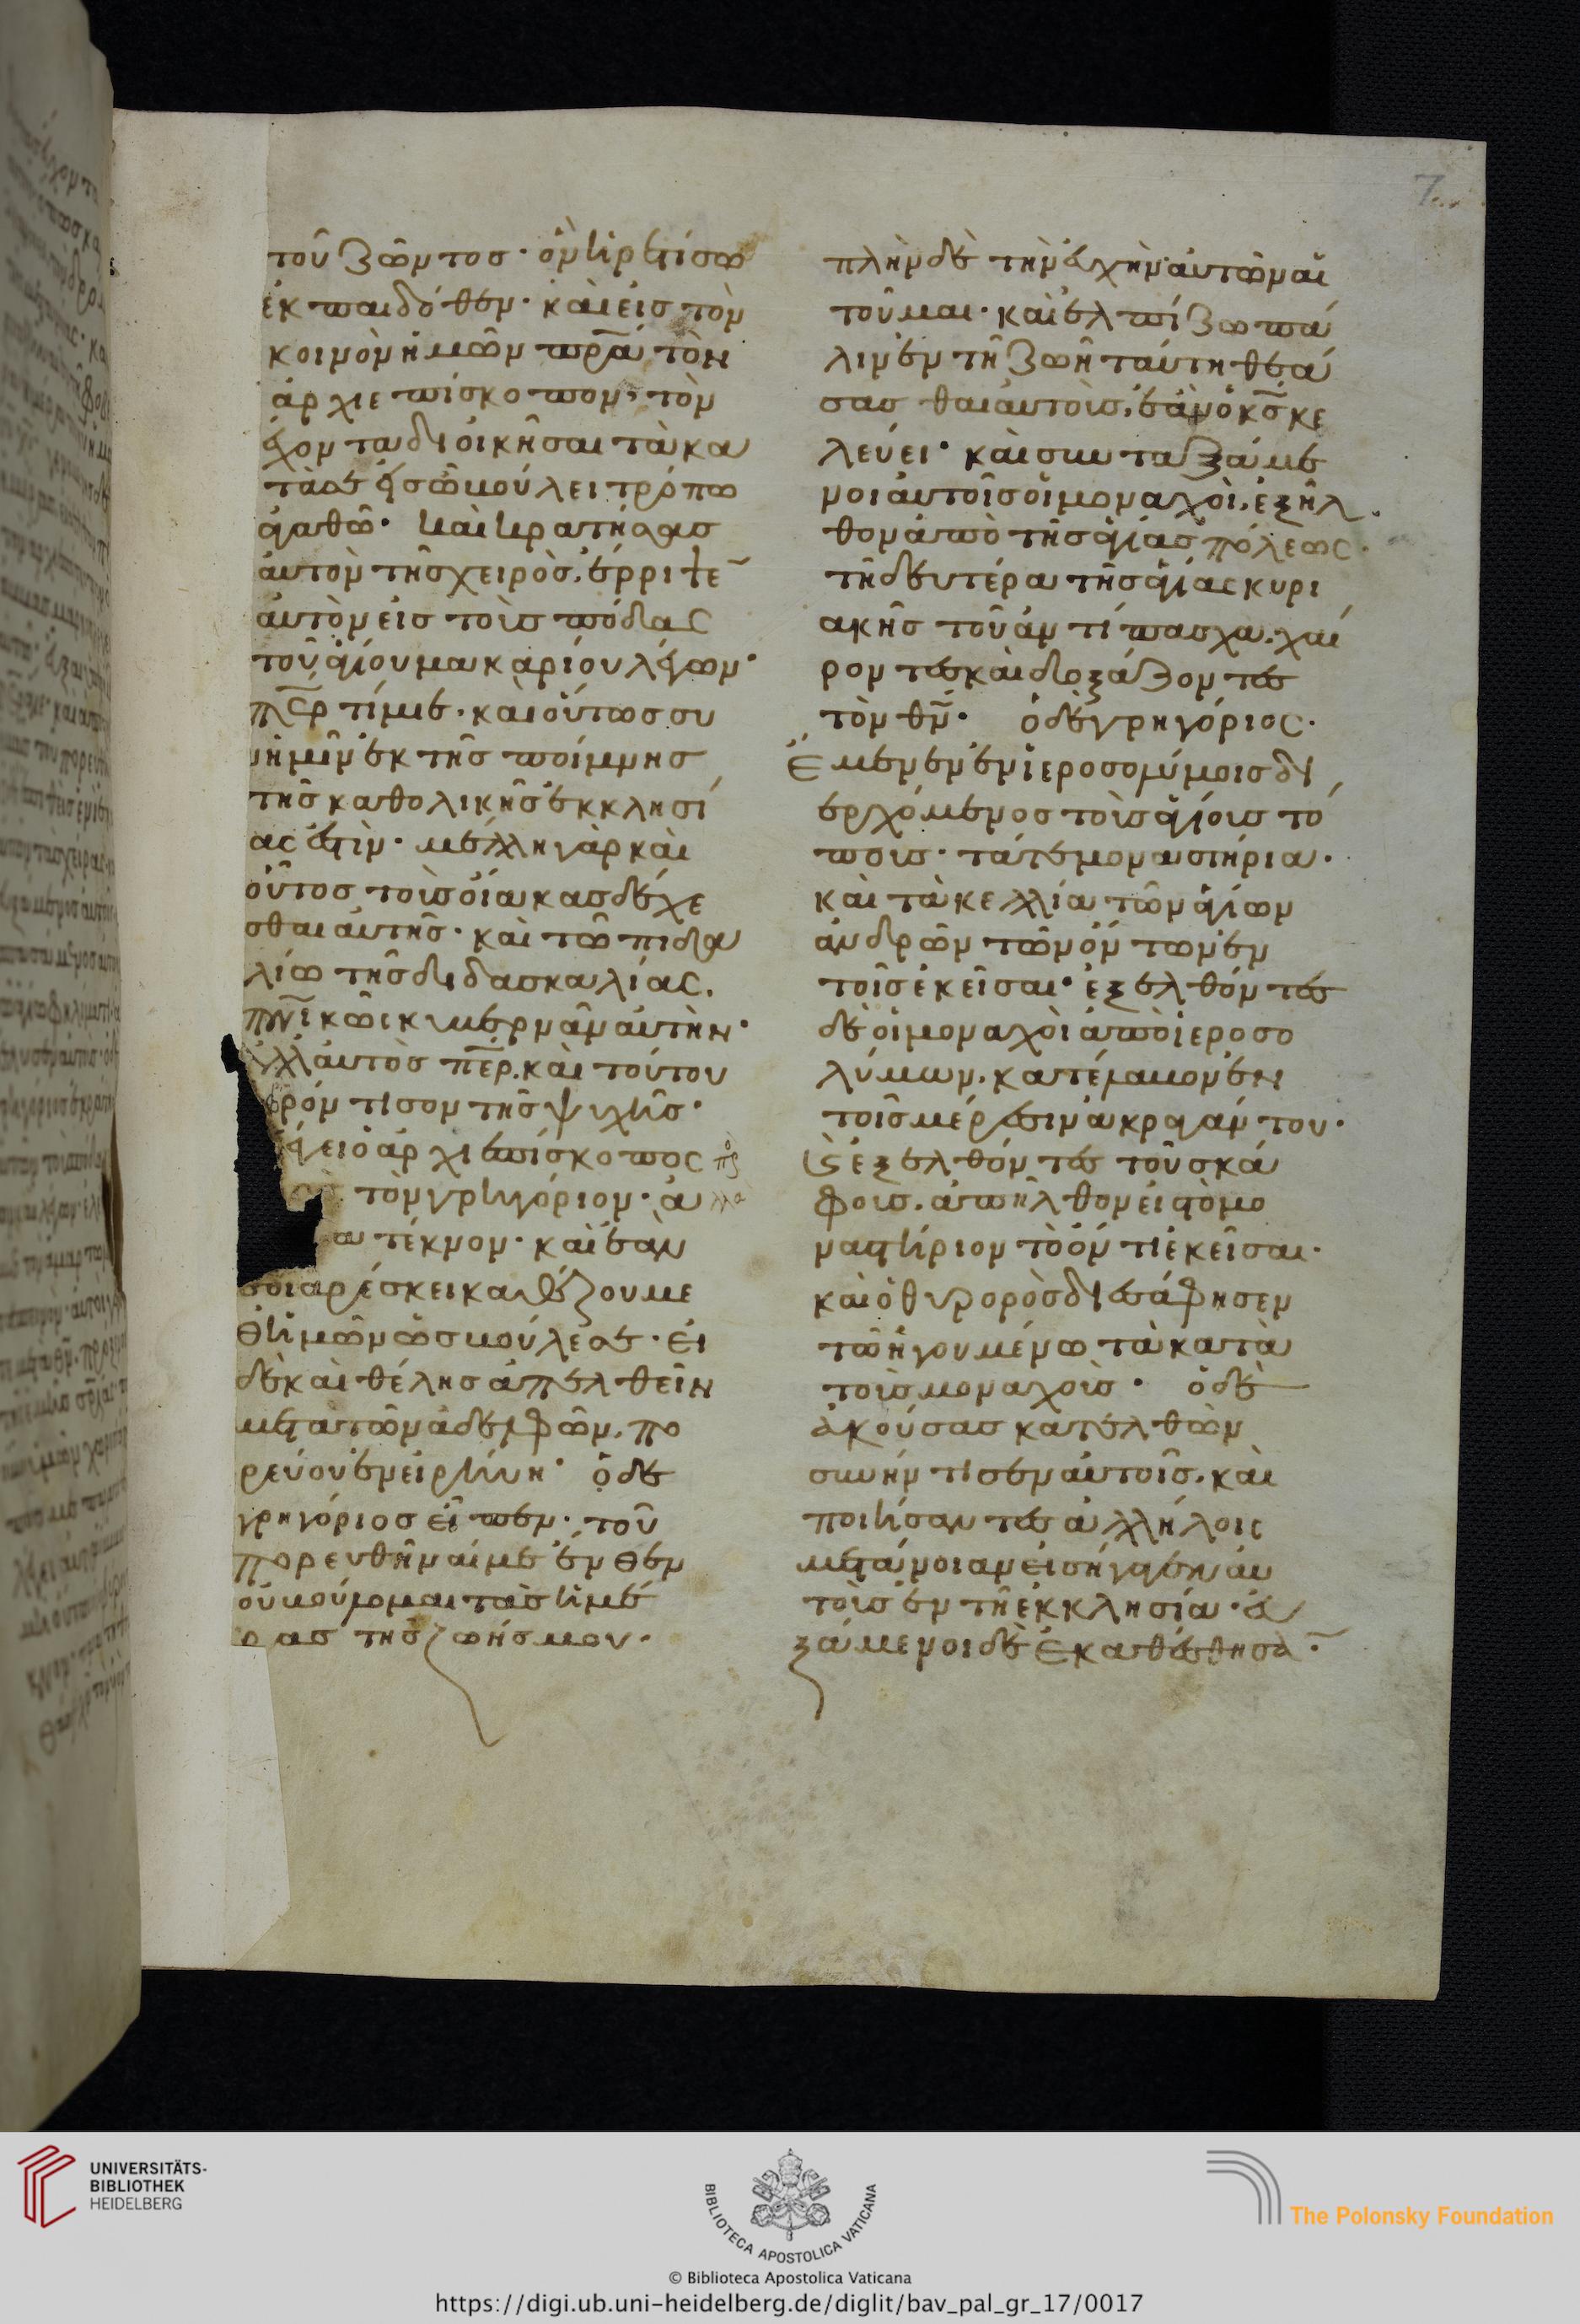 τοῦ ζῶντος· ὃν ἠρετίσω
ἐκ παιδόθεν· καὶ εἰς τὸν
κοινὸν ἡμῶν πρ̅α τὸν
ἀρχιεπίσκοπον· τὸν
ἔχοντα διοικῆσαι τὰ κα
τὰ σὲ ὡς βούλει τρόπω
ἀγαθῶ· καὶ κρατήσας
αὐτὸν τῆς χειρὸς, ἔρριψε
αὐτὸν εἰς τοὺς πόδας
τοῦ ἁγίου μακαρίου λέγων·
π̅ερ τίμιε· καὶ οὗτος συ
ἡμῖν ἐκ τῆς ποίμνης
τῆς καθολικῆς ἐκκλησί
ας ἐστὶν· μέλλη γὰρ καὶ
οὗτος τοὺς οἴακας δέχε
σθαι αὐτῆς· καὶ τῶ πιδα
λίω τῆς διδασκαλίας.
πν̅ικῶ κυβερνᾶν αὐτὴν·
αὐτὸς π̅ερ. καὶ τούτου
φρόντισον τῆς ψυχῆς·
λέγει ὁ ἀρχιεπίσκοπος πρὸς
τὸν γρηγόριον· ἀλλὰ
τέκνον· καὶ ἐὰν
σοι ἀρέσκει καθέζου με
θ ἡμῶν ὡς βούλεσαι· εἰ
δὲ καὶ θέλης ἀπελθεῖν
μετὰ τῶν ἀδελφῶν, πο
ρεύου ἐν εἰρήνη· ὁ δὲ
γρηγόριος εἶπεν· τοῦ
πορευθῆναί με ἔνθεν
οὐ βούλομαι τὰς ἡμέ
ρας τῆς ζωῆς μου·
πλὴν δὲ τὴν εὐχὴν αὐτῶν αἰ
τοῦμαι· καὶ ἐλπίζω πά
λιν ἐν τῆ ζωῆ ταύτη θεά
σασθαι αὐτοὺς, ἐὰν ὁ κ̅ς κε
λεύει· καὶ συνταξάμε
νοι αὐτοῖς οἱ μοναχοὶ, ἐξῆλ
θον ἀπὸ τῆς ἁγίας πόλεως·
τῆ δευτέρα τῆς ἁγίας κυρι
ακῆς τοῦ ἀντίπασχα, χαί
ροντες καὶ δοξάζοντες
τὸν θν̅· ὁ δὲ γρηγόριος·
Ἔμενεν ἐν ἱεροσολύμοις δι
ερχόμενος τοὺς ἁγίους τό
πους· τά τε μοναστήρια·
καὶ τὰ κελλία τῶν ἁγίων
ἀνδρῶν τῶν ὄντων ἐν
τοῖς ἐκεῖσαι· ἐξελθόντες
δὲ οἱ μοναχοὶ ἀπὸ ἱεροσο
λύμων, κατέλαβον ἐν
τοῖς μέρεσιν ἀκραγάντου·
ϛ ἐξελθόντες τοῦ σκά
φους, ἀπῆλθον εἰς τὸ μο
ναστήριον τὸ ὄντι ἐκεῖσαι·
καὶ ὁ θυρορὸς διεσάφησεν
τῶ ἡγουμένω τὰ κατὰ
τοὺς μοναχοὺς· ὁ δὲ
ἀκούσας κατελθὼν
συνήντισεν αὐτοῖς, καὶ
ποιήσαντες ἀλλήλοις
μετάνοιαν εἰσήγαγεν αὐ
τοὺς ἐν τῆ ἐκκλησία· εὐ
ξάμενοι δὲ ἐκαθέσθησα̅·
7
UNIVERSITÄTS-
BIBLIOTHEK
HEIDELBERG
BIBLIOTECA APOSTOLICA VATICANA
The Polonsky Foundation
© Biblioteca Apostolica Vaticana
https://digi.ub.uni-heidelberg.de/diglit/bav_pal_gr_17/0017